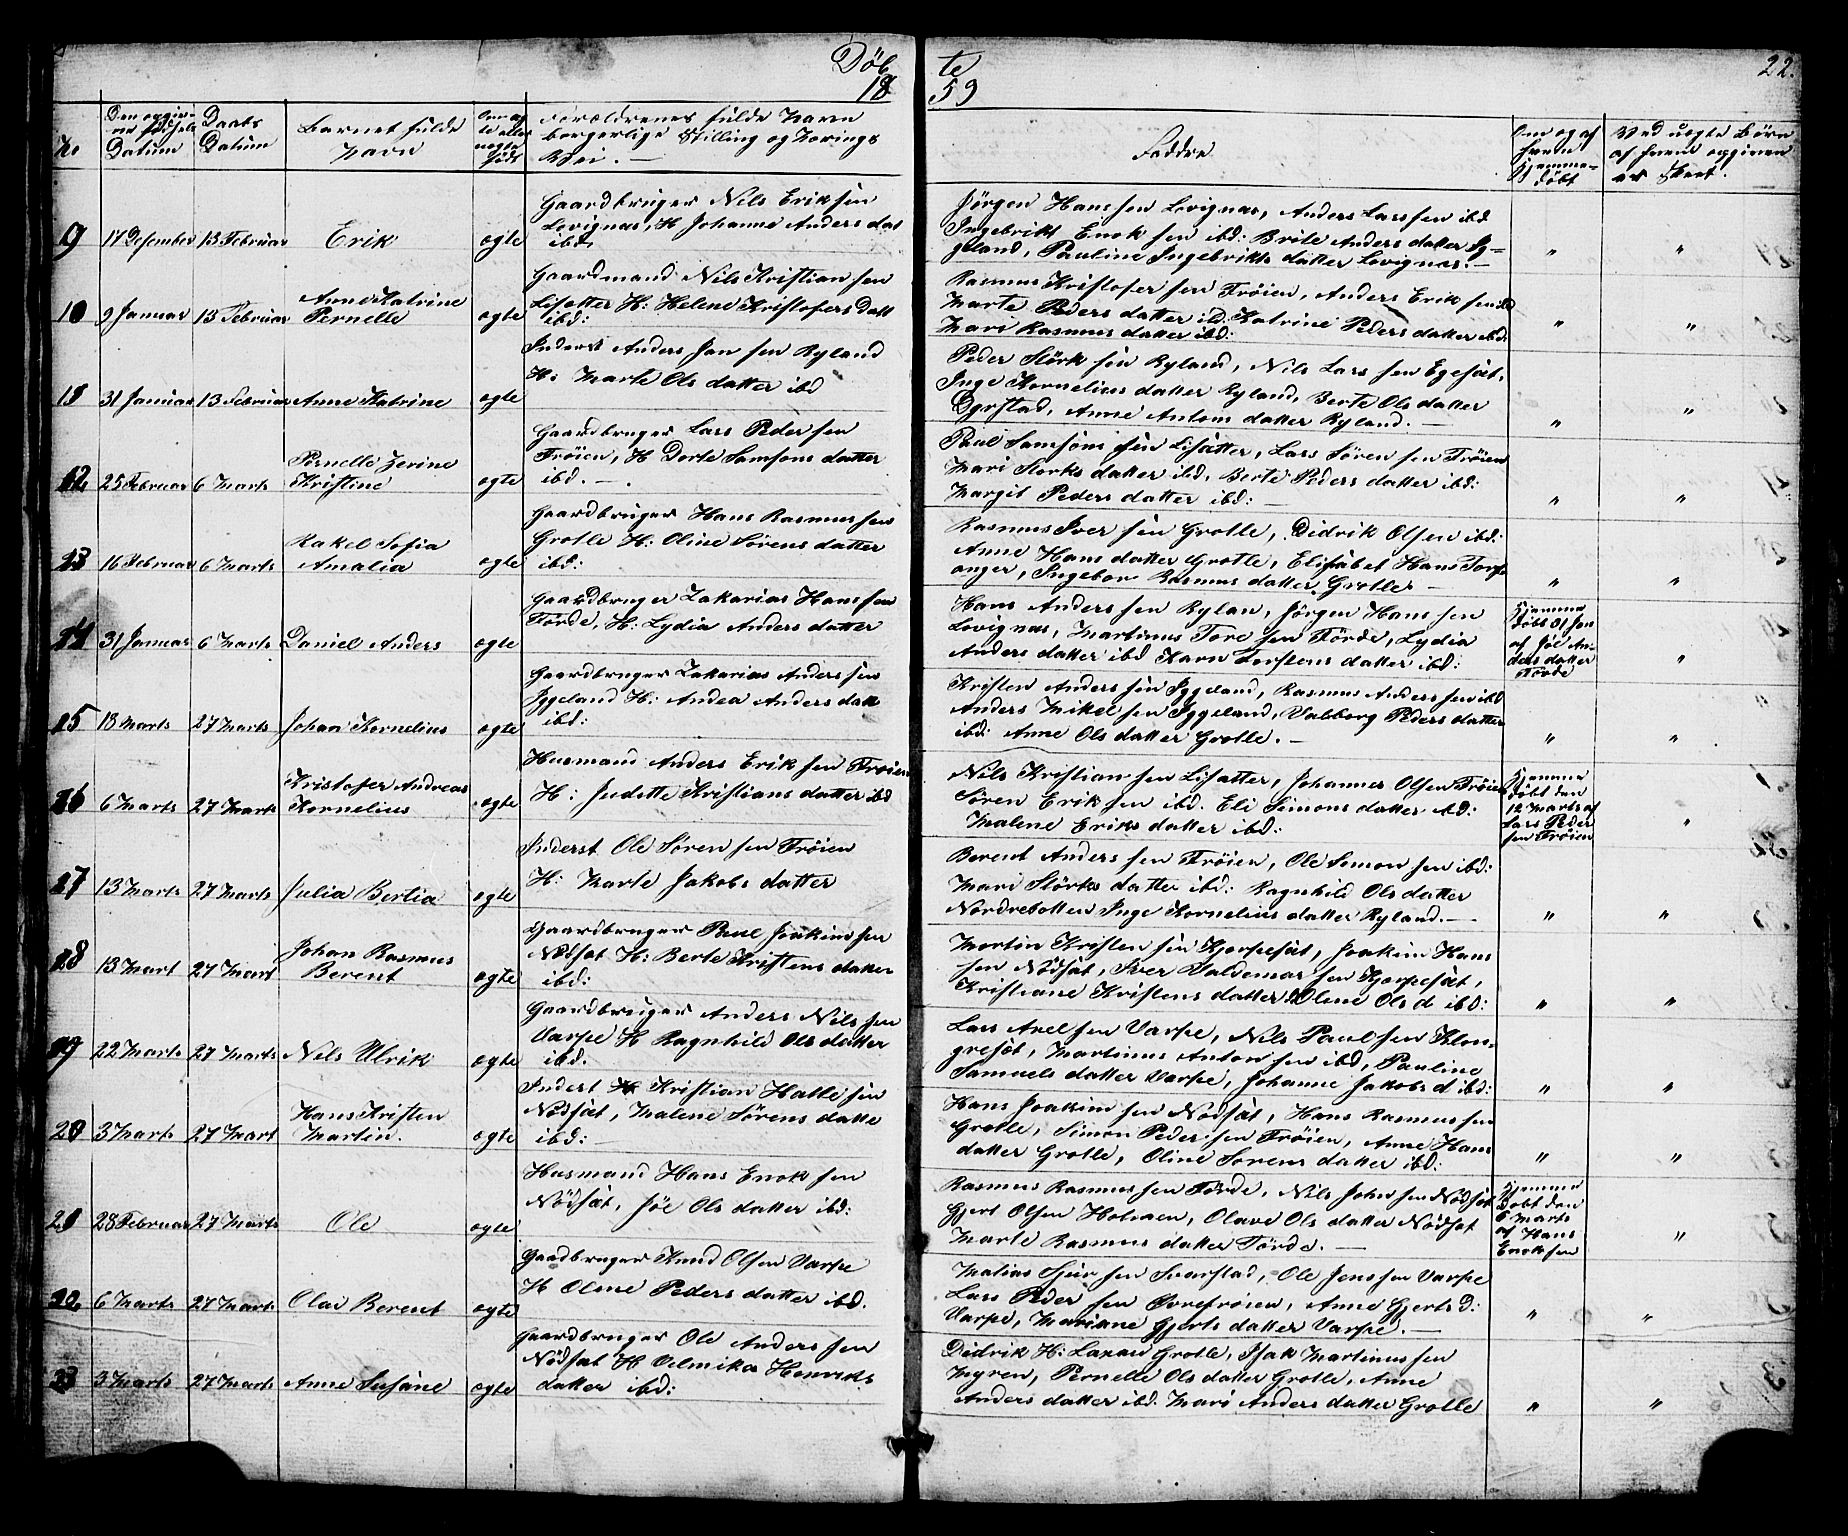 Döb te
18 59
22.
No. Den opgivne Födsels Datum Daabs Datum Barnet fulde Navn Om ægte eller uægte föds Forældrenes fulde Navn borgerlige Stilling og Nærings Vei. —
Faddre
Om og af hvem hjemme-döbt
Ved uegte Börn af hvem opgiven er skeet.
9 17 Desember 13 Februar Erik egte
Gaardbruger Nils Eriksen
Levignas, H Johanne Anders dat
ibd
Jörgen Hans sen Levignas, Anders Lars sen ibd
Ingebrikt Enok sen ibd: Brite Anders datter Ig=
geland, Pauline Ingebrikts datter Levignas. —
" "
10 9 Januar 13 Februar Anne Katrine Pernelle egte
Gaardmand Nils Kristian sen
Lisætter H: Helene Kristofers Datt
ibd:
Rasmus Kristofer sen Fröien, Anders Erik sen ibd
Marte Peders datter ibd. Katrine Peders datter ibd.
Mari Rasmus datter ibd:
" "
11 31 Januar 13 Februar Anne Katrine egte
Inderst Anders Jan sen Ryland
H: Marte Ols datter ibd
Peder Störk sen Ryland, Nils Lars sen Egesæt,
Inge Kornelius datter Ryland, Berte Ols datter
Dyrstad, Anne Antom datter Ryland. —
" "
12 25 Februar 6 Marts Pernelle Zerine Kristine egte
Gaardbruger Lars Peder sen
Fröien, H Dorte Samsons datter
ibd. — .
Paul Samsons sen Lisætter, Lars Sören sen Fröien
Mari Störks datter ibd, Berte Peders datter ibd:
Margit Peders datter ibd: —
" "
13 16 Februar 6 Marts Rakel Sofia Amalia egte
Gaardbruger Hans Rasmus sen
Grotle H: Oline Sörens datter
ibd:
Rasmus Iver sen Grotle, Didrik Olsen ibd:
Anne Hans datter Grotle, Elisabet Hans Torfs
anger, Ingebor Rasmus datter Grotle —
" "
14 31 Januar 6 Marts Daniel Anders egte
Gaardbruger Zakarias Hans sen
Förde, H: Lydia Anders datter
Hans Anders sen Rylan, Jörgen Hans sen
Levignas, Martinus Tore sen Förde, Lydia
Anders datter ibd Karn Torstens datter ibd:
Hjemme döbt 31 Jan af Jöe Anders datter Förde
"
15 18 Marts 27 Marts Johan Kornelius egte
Gaardbruger Zakarias Anders sen
Iggeland H: Andea Anders datt
ibd:
Kristen Anders sen Iggeland, Rasmus Anders sen ibd
Anders Mikel sen Iggeland, Valborg Peders datter
ibd: Anne Ols datter Grotle. —
" "
16 6 Marts 27 Marts Kristofer Andreas Kornelius egte
Husmand Anders Erik sen Fröien
H: Judette Kristians datter ibd
Nils Kristian sen Lisætter, Johannes Olsen Fröien
Sören Erik sen ibd. Eli Simons datter ibd:
Malene Eriks datter ibd:
Hjemme döbt den 12 Marts af Lars Peder sen Fröien
"
17 13 Marts 27 Marts Julia Bertia egte
Inderst Ole Sören sen Fröien
H: Marte Jakobs datter
Berent Anders sen Fröien, Ole Simon sen ibd:
Mari Störks datter ibd: Ragnhild Ols datter
Nordrebotten Inge Kornelius datter Ryland. —
" "
18 13 Mart 27 Mart Johan Rasmus Berent egte
Gaardbruger Paul Joakim sen
Nödsæt H: Berte Kristens datter
ibd:
Martin Kristen sen Kjerpesæt, Joakim Hans
sen Nödsæt, Iver Valdemar sen Kjerpesæt,
Kristiane Kristens datter Olene Ols d ibd:
" "
19 22 Marts 27 Marts Nils Ulrik egte
Gaardbruger Anders Nils sen
Varpe H Ragnhild Ols datter
ibd:
Lars Axel sen Varpe, Nils Paul sen Klon
gresæt, Martinus Anton sen ibd, Pauline
Samuels datter Varpe, Johanne Jakobs d ibd:
" "
20 3 Marts 27 Mart Hans Kristen Martin. egte
Inderst Kristian Halte sen
Nödsæt, Malene Sörens datte
ibd: —
Hans Joakim sen Nödsæt, Hans Rasmus sen
Grotle, Simon Peder sen Fröien, Anne Hans
datter Grotle, Oline Sörens datter ibd:
" "
21 28 Februar 27 Marts Ole egte
Husmand Hans Enok sen
Nödsæt, Jöe Ols datter ibd:
Rasmus Rasmus sen Förde, Nils John sen Nödsæt
Gjert Olsen Holmen, Olave Ols datter Nödsæt
Marte Rasmus datter Förde. —
Hjemme döbt den 6 Marts af Hans Enoksen
"
22. 6 Marts 27 Marts Olai Berent egte
Gaadbruger Knud Olsen Varpe
H Oline Peders datter ibd.
Matias Sjur sen Svarstad, Ole Jens sen Varpe
Lars Peder sen Övrefröien, Anne Gjerts d:
Varpe, Mariane Gjerts datter Varpe. —
" "
23 3 Marts 27 Marts Anne Susane egte
Gaardbruger Ole Anders sen
Nödsæt H Velmika Henriks
datter ibd:
Didrik H: Laxau Grotle, Isak Martinus sen
Myren, Pernelle Ols datter Grotle, Anne
Anders datter ibd. Mari Anders datter Grotle
" "